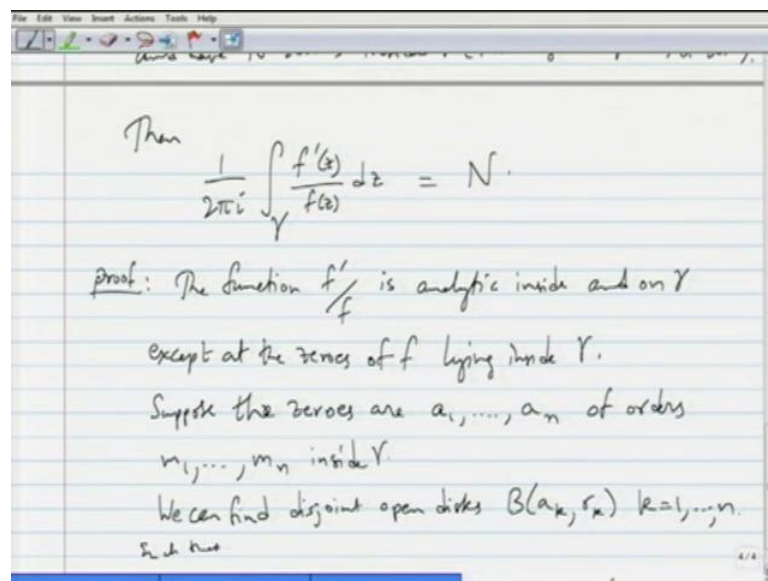 File Edit View Insert Actions Tools Help
Then
1/2πi ∫γ f'(z)/f(z) dz = N.
proof: The function f'/f is analytic inside and on γ
except at the zeroes of f lying inside γ.
Suppose the zeroes are a₁, ...., aₙ of orders
m₁, ..., mₙ inside γ.
We can find disjoint open disks B(aₖ, rₖ) k=1, ..., n.
Such that
4/4